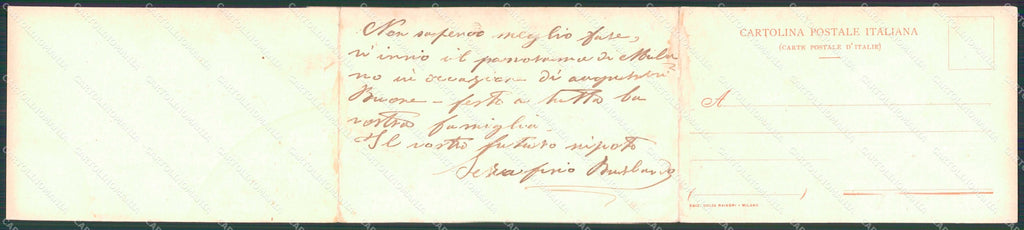 Non sapendo meglio fare,
v'invio il panorama di Mila
no in occasione di augurarvi
Buone feste a tutta la
vostra famiglia.
Il vostro futuro nipote
Serafino
CARTOLINA POSTALE ITALIANA
(CARTE POSTALE D'ITALIE)
A
MILANO